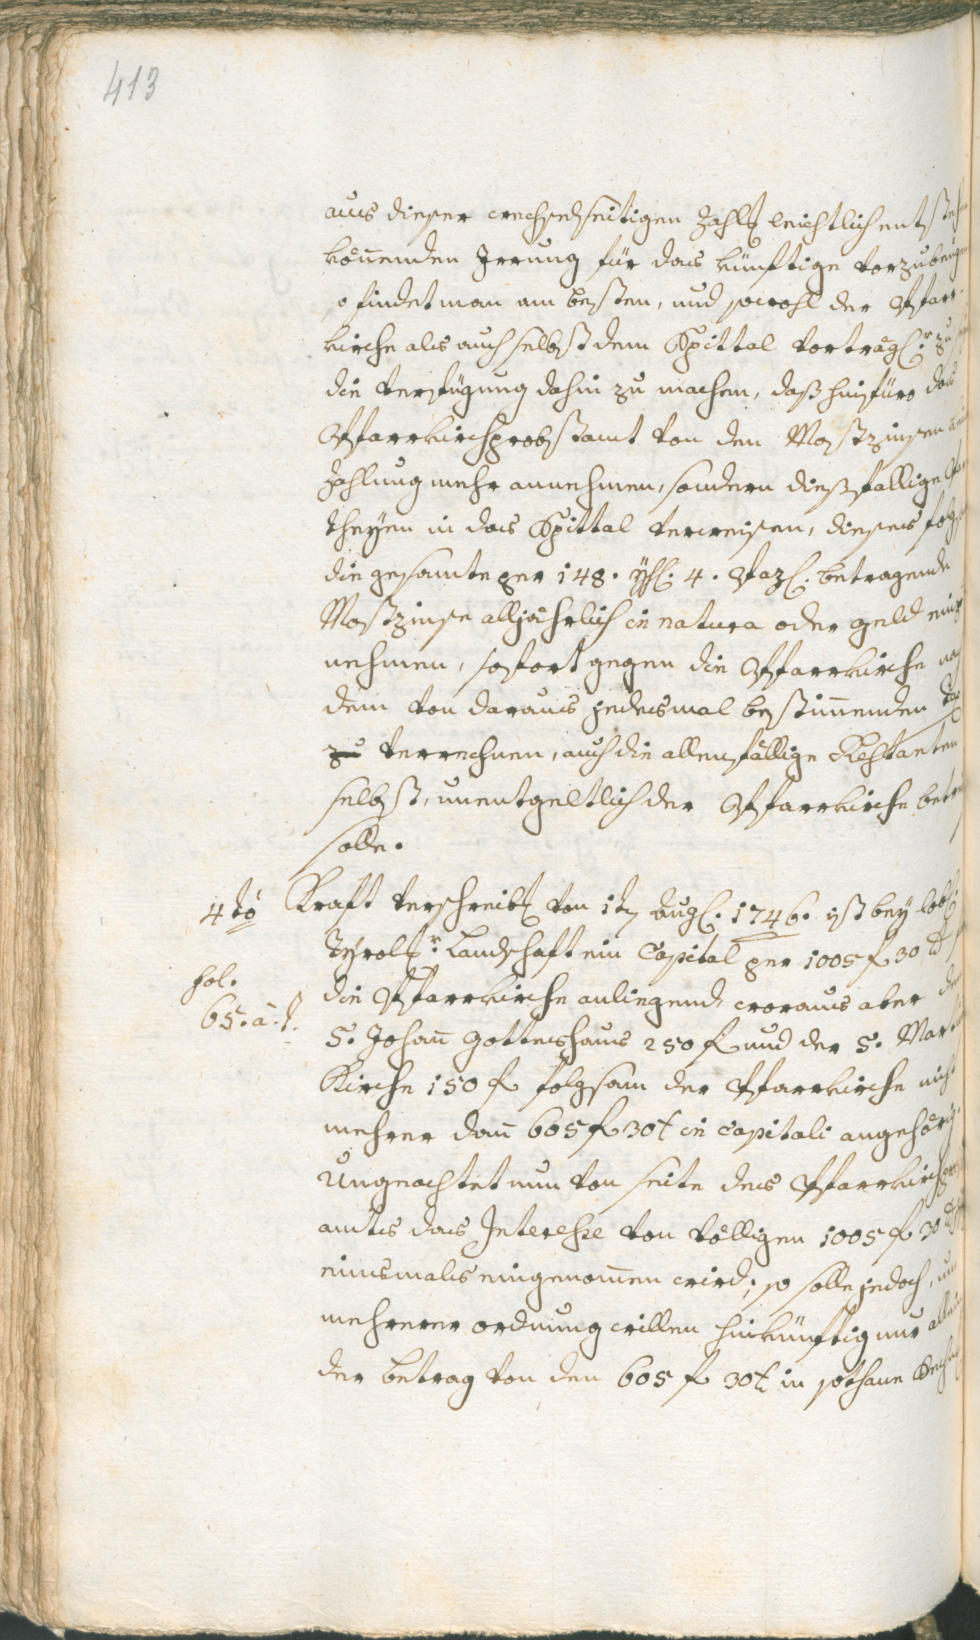 413
aus dieser wechselseitigen Zahlg leichtlich entsteh
könnenden Irrung für das künftige vorzubeug
so findet man am besten, und sowohl der Pfarr-
kirche als auch selbst dem Spittal verträgl:r zu
die Verfügung dahin zu machen, daß hinfüro das
Pfarrkirchprobstamt von den Mostzinsen
Zahlung mehr annehmen, sondern dießfällige
theyen in das Spittal verweisen, dieses folg
die gesamte per 148. Yh: 4. Pazl: betragende
Mostzinse alljährlich in natura oder geld ein
nehmen, sofort gegen die Pfarrkirche
dem von daraus jedesmal bestimmenden
zu verrechnen, auch die allenfällige Restanten
selbst, unentgeltlich der Pfarrkirche
solle.
4to Kraft verschreibg von 1tn Augl: 1746. ist bey löbl:
Tyrolr: Landschaft ein Capital per 1005 f 30 x
fol.
65. à. t.
die Pfarrkirche anliegend, woraus aber
S. Johan̄ Gotteshaus 250 f und der S. Mart
Kirche 150 f folgsam der Pfarrkirche nicht
mehrer dan̄ 605 f 30 x in capitali angehörig.
Ungeachtet nun von seite des Pfarrkirch
amts das Interesse von völligen 1005 f 30 x
einsmals eingenom̄en wird; so solle jedoch, um
mehrerer ordnung willen hinkünftig nur allein
der betrag von den 605 f 30 x in sothane